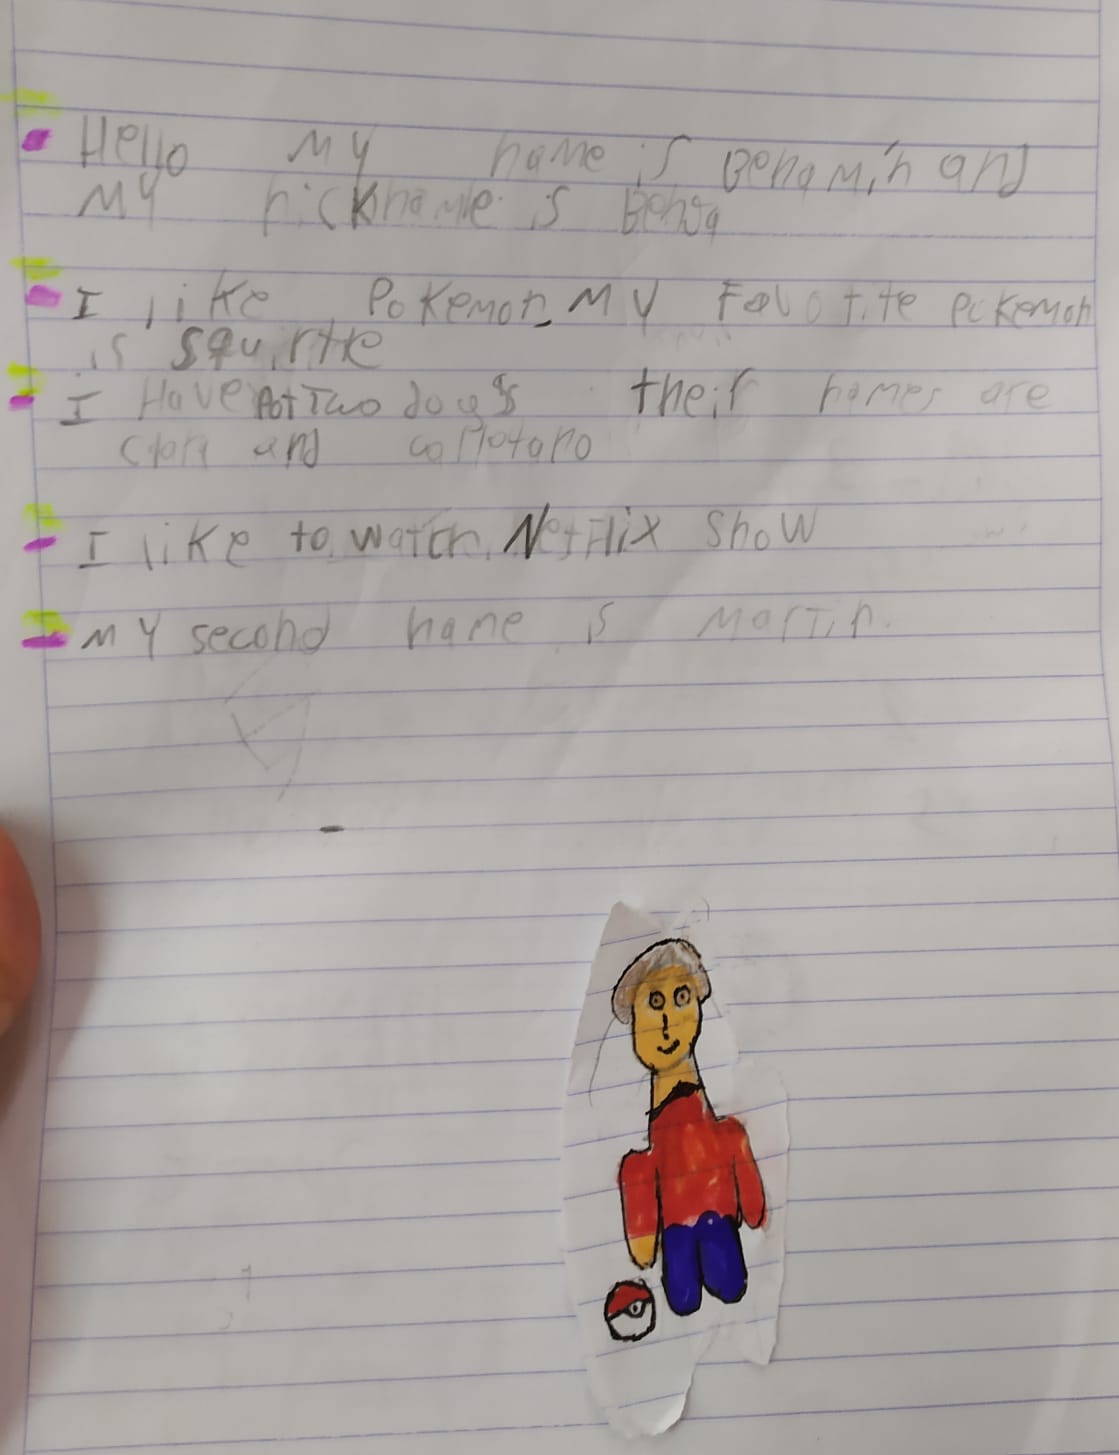 Hello my name is Benamin and
My nickname is Benja
I like Pokemon. My Favorite Pokemon
is squirtle
I Have two dogs their names are
and
I like to watch Netflix show
My second name is Martin.